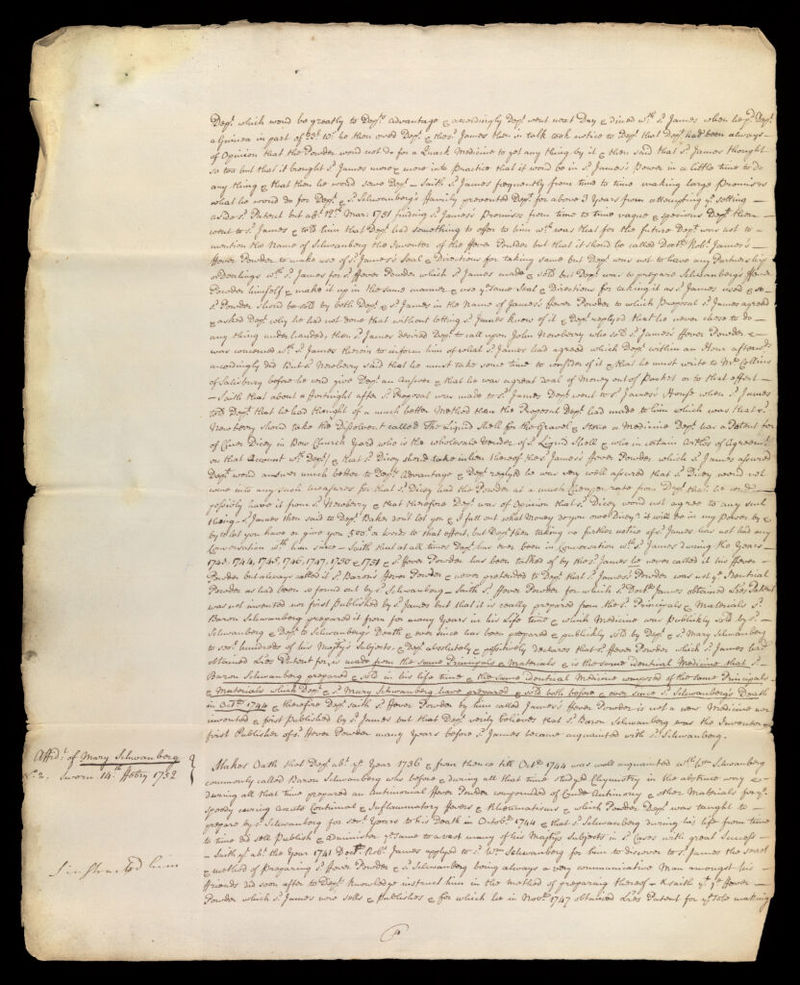 Dep.t which wou'd be greatly to Dep.ts advantage & accordingly Dep.t went next Day & dined w.th S.d James when he p.d Dep.t
a Guinea in part of he then owed Dep.t & the s.d James then in talk took notice to Dep.t that Dep.t had been always
of Opinion that the Powder wou'd not do for a Quack Medicine to get any thing by it & then said that S.d James thought
so too but that it brought S.d James more & more into Practice that it wou'd be in S.d James's Power in a little time to do
any thing & that then he wou'd serve Dep.t – Saith S.d James frequently from time to time making large Promises
what he wou'd do for Dep.t & S.d Schwanberg's family prevented Dep.t for above 3 Years from attempting y.e setting
aside S.d Patent but ab.t 12.th Mar: 1751 finding S.d James's Promises from time to time vague & specious Dep.t then
went to S.d James & told him that Dep.t had something to offer to him w.ch was that for the future Dep.t was not to
mention the Name of Schwanberg the Inventor of the ffever Powder but that it shou'd be called Doct.r Rob.t James's
ffever Powder to make use of S.d James's Seal & Directions for taking same but Dep.t was not to have any Partnership
or Dealings w.th S.d James for S.d ffever Powder which S.d James made & sold but Dep.t was to prepare Schwanberg's ffever
Powder himself & make it up in the same manner & use y.e same Seal & Directions for taking it as S.d James used & so
S.d Powder shou'd be sold by both Dep.t & S.d James in the Name of James's ffever Powder to which Proposal S.d James agreed
& asked Dep.t why he had not done that without letting S.d James know of it & Dep.t reply'd that he never chose to do
any thing underhanded, then S.d James desired Dep.t to call upon John Newberry who sold S.d James's ffever Powder &
was concerned w.th S.d James therein to inform him of what S.d James had agreed which Dep.t within an Hour afterw.ds
accordingly did But S.d Newberry said that he must take some time to consider of it & that he must write to M.r Collins
of Salisbury before he cou'd give Dep.t an Answer & that he was a great deal of Money out of Pocket or to that effect
– Saith that about a fortnight after S.d Proposal was made to S.d James Dep.t went to S.d James's House when S.d James
told Dep.t that he had thought of a much better Method than the Proposal Dep.t had made to him which was that S.d
Newberry shou'd take the Dissolvent called The Liquid Shell for the Gravel & Stone a Medicine Dep.t has a Patent for
of Cluer Dicey in Bow Church Yard who is the wholesale Vender of S.d Liquid Shell & who is in certain Articles of Agreem.t
on that Account w.th Dep.t & that S.d Dicey shou'd take in lieu thereof the S.d James's ffever Powder which S.d James assured
Dep.t wou'd answer much better to Dep.ts Advantage & Dep.t reply'd he was very well assured that S.d Dicey wou'd not
come into any such measures for that S.d Dicey had the Powder at a much cheaper rate from Dep.t than he cou'd
possibly have it from S.d Newberry & that therefore Dep.t was of Opinion that S.d Dicey wou'd not agree to any such
thing – S.d James then said to Dep.t Baker don't let you & I fall out what Money do you owe Dicey? it will be in my Power by &
by to let you have or give you 500.£ or words to that effect, but Dep.t then taking no further notice of S.d James has not had any
Conversation w.th him since – Saith that at all times Dep.t has ever been in Conversation w.th S.d James during the Years
1743, 1744, 1745, 1746, 1747, 1750 & 1751 & S.d ffever Powder has been talked of by the S.d James he never called it his ffever
Powder but always called it S.d Baron's ffever Powder & never pretended to Dep.t that S.d James's Powder was not y.e Identical
Powder as had been so found out by S.d Schwanberg – Saith S.d ffever Powder for which S.d Doct.r James obtained L.res Patent
was not invented nor first Published by S.d James but that it is really prepared from the S.d Principals & Materials S.d
Baron Schwanberg prepared it from for many Years in his Life time & which Medicine was Publickly sold by S.d
Schwanberg & Dep.t to Schwanberg's Death & ever since has been prepared & publickly sold by Dep.t & S.d Mary Schwanberg
to sev.l hundreds of his Majesty's Subjects, & Dep.t absolutely & positively declares that S.d ffever Powder which S.d James hath
obtained L.res Patent for, is made from the same Principals & Materials & is the same identical Medicine that S.d
Baron Schwanberg prepared & sold in his life time & the same identical Medicine composed of the same Principals
& Materials which Dep.t & S.d Mary Schwanberg have prepared & sold both before & ever since S.d Schwanberg's Death
in Oct.r 1744 & therefore Dep.t saith S.d ffever Powder by him called James's Powder is not a new Medicine nor
invented & first Published by S.d James but that Dep.t verily believes that S.d Baron Schwanberg was the Inventor &
first Publisher of S.d ffever Powder many Years before S.d James became acquainted with S.d Schwanberg.
Affid.t of Mary Schwanberg
N.o 2. Sworn 14.th ffebry 1752
Makes Oath that Dep.t ab.t y.e Year 1736 & from thence till Oct.r 1744 was well acquainted w.th W.m Schwanberg
commonly called Baron Schwanberg who before & during all that time studyed Chymistry in the abstruse way &
during all that time prepared an Antimonial ffever Powder compounded of Crude Antimony & other Materials for y.e
speedy curing Acute Continual & Inflammatory ffevers & Rheumatisms & which Powder Dep.t was taught to
prepare by S.d Schwanberg for sev.l Years to his Death in Octob.r 1744 & that S.d Schwanberg during his life from time
to time did sell Publish & Administer y.e same to a vast many of his Majtys Subjects in S.d Cases with great Success
– Saith y.t ab.t the Year 1741 Doct.r Rob.t James applyed to S.d W.m Schwanberg for him to discover to S.d James the secret
& method of Preparing S.d ffever Powder & S.d Schwanberg being always a very communicative Man amongst his
ffriends did soon after to Dep.ts Knowledge instruct him in the Method of preparing thereof – & saith y.t y.e ffever
Powder which S.d James now sells & Publishes & for which he in Nov.r 1747 obtained L.res Patent for y.e sole making
Instructed him